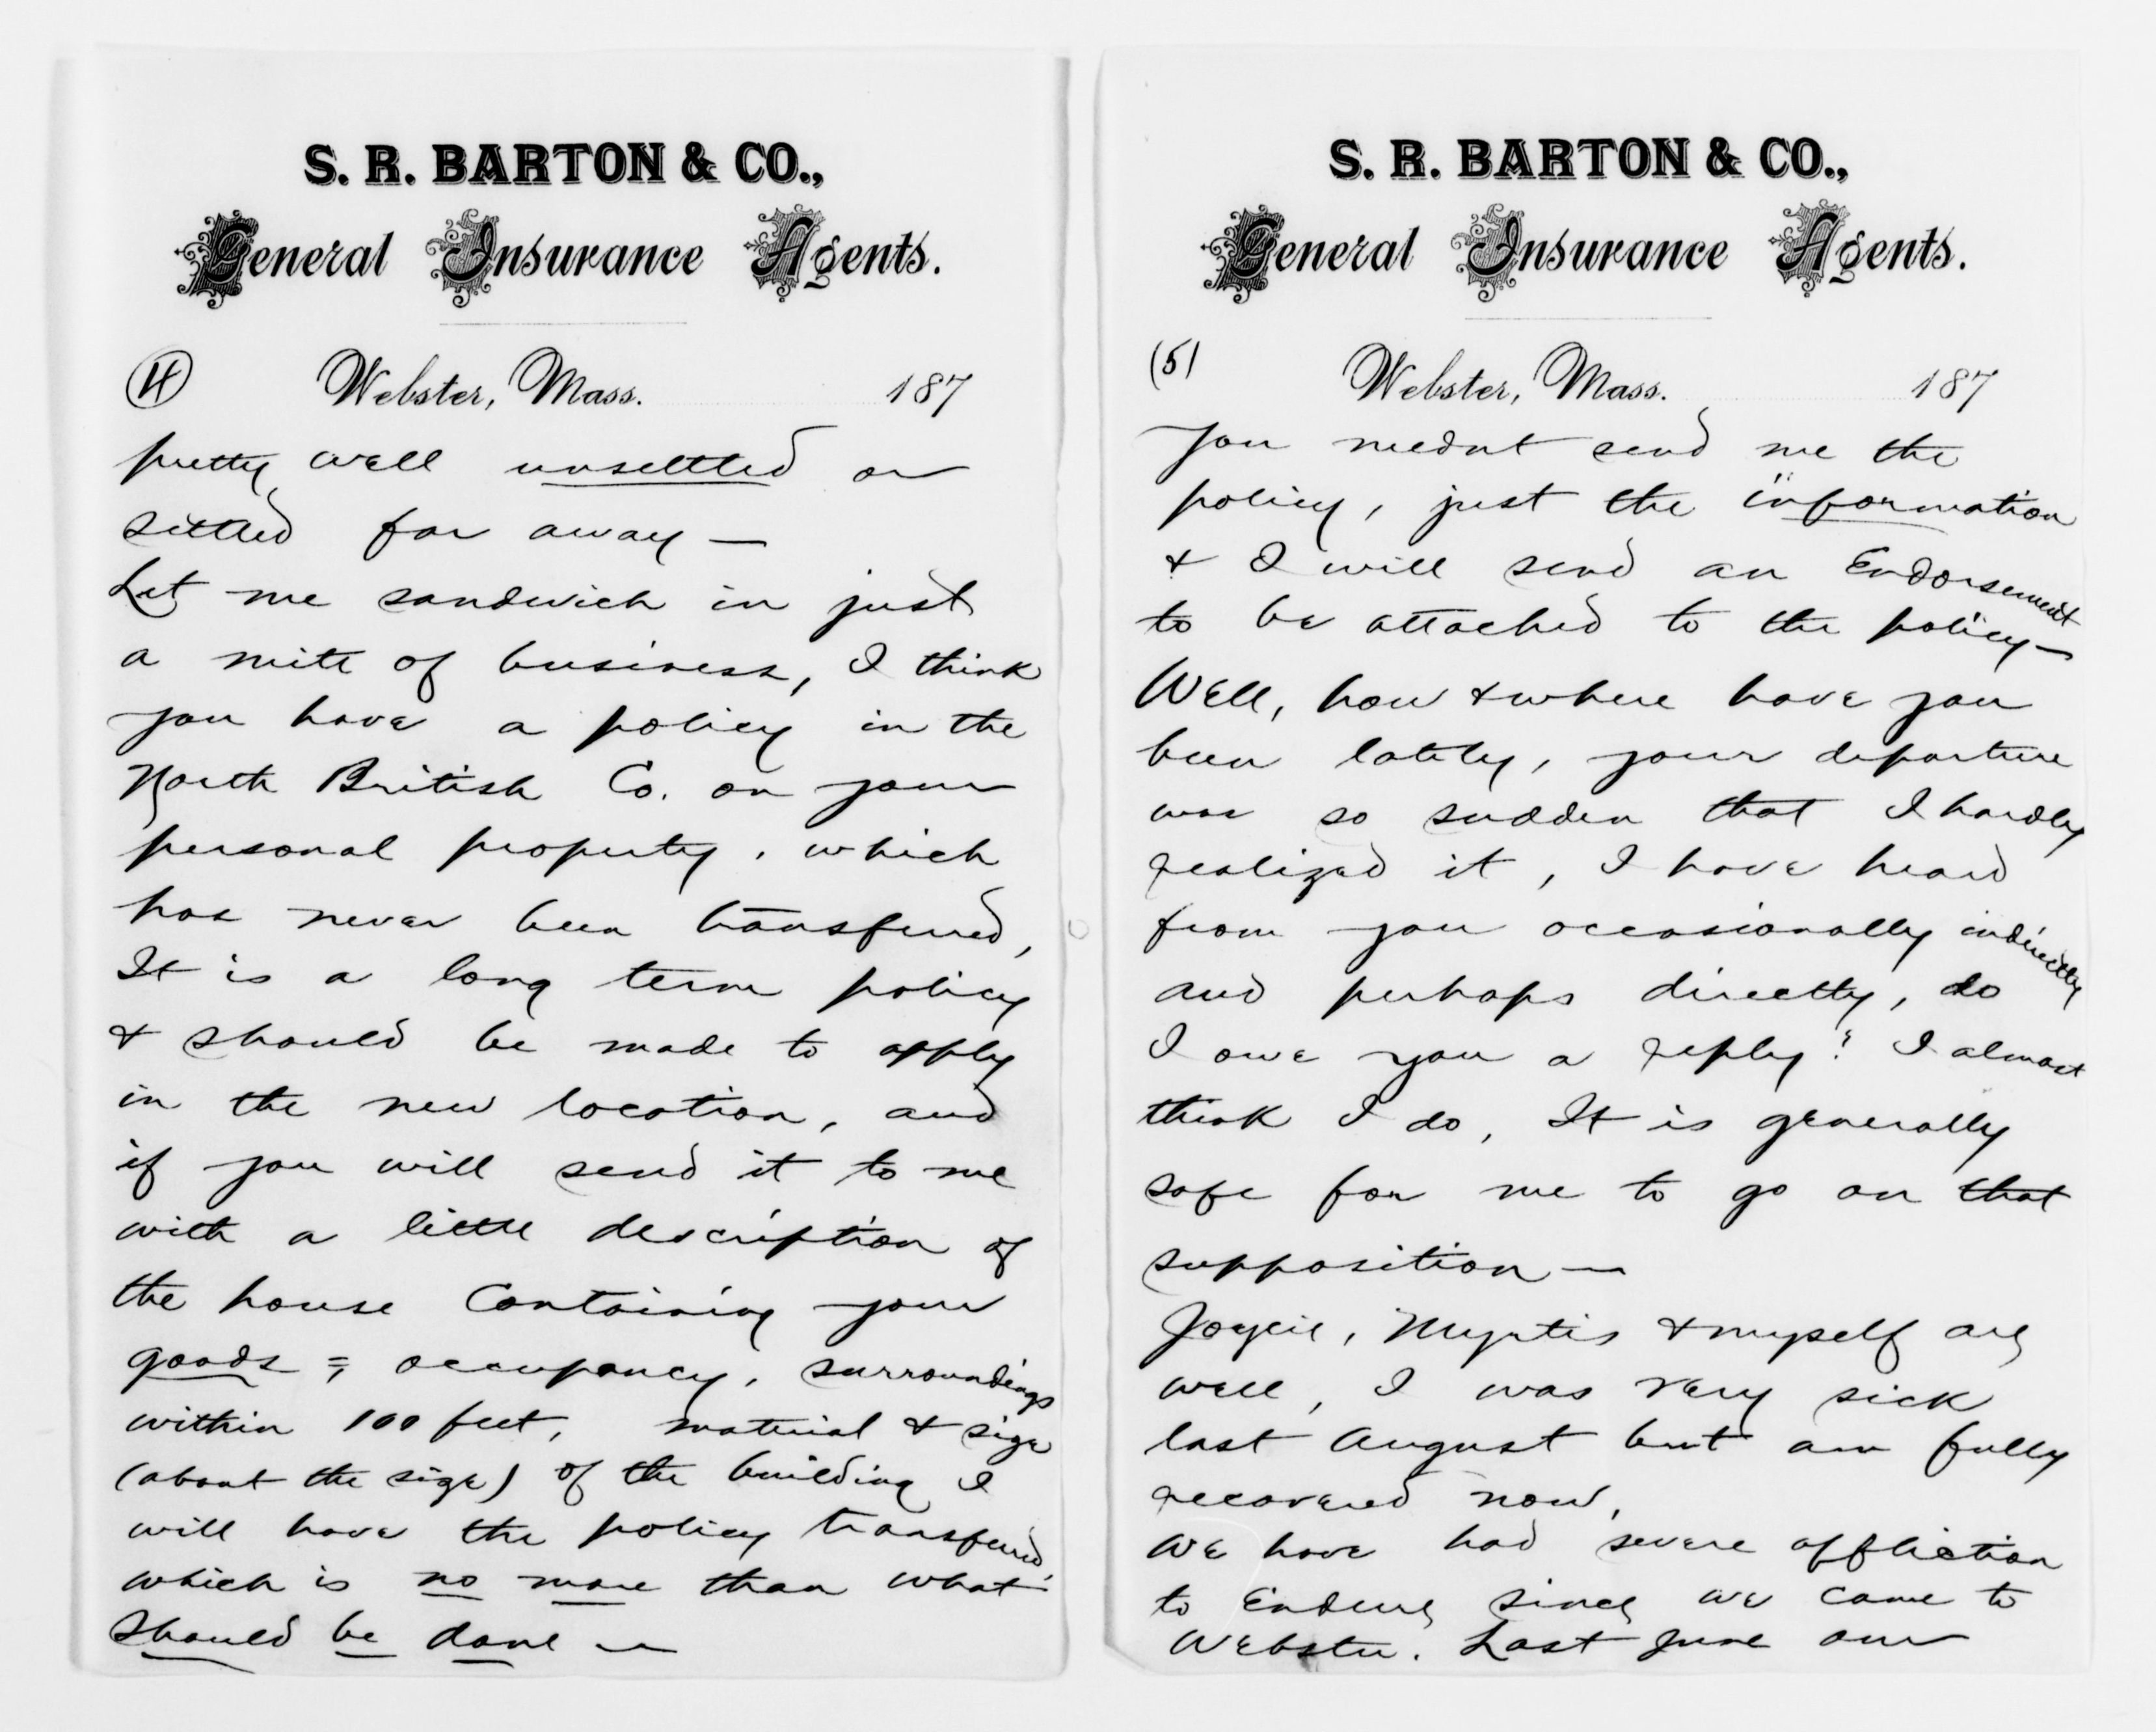 S. R. BARTON & CO.,
General Insurance Agents.
4 Webster, Mass. 187
pretty well unsettled or
settled far away —
Let me sandwich in just
a mite of business, I think
you have a policy in the
North British Co. on your
personal property, which
has never been transferred,
It is a long term policy
& should be made to apply
in the new location, and
if you will send it to me
with a little description of
the house Containing your
goods = occupancy, surroundings
within 100 feet, material & size
(about the size) of the building I
will have the policy transferred
which is no more than what
should be done —
S. R. BARTON & CO.,
General Insurance Agents.
(5) Webster, Mass. 187
you neednt send me the
policy, just the information
& I will send an Endorsement
to be attached to the policy—
Well, how & where have you
been lately, your departure
was so sudden that I hardly
realized it, I have heard
from you occasionally indirectly
and perhaps directly, do
I owe you a reply? I almost
think I do, It is generally
safe for me to go on that
supposition —
Joycie, Myrtis & myself are
well, I was very sick
last August but am fully
recovered now,
We have had severe affliction
to Endure since we came to
Webster. Last June our